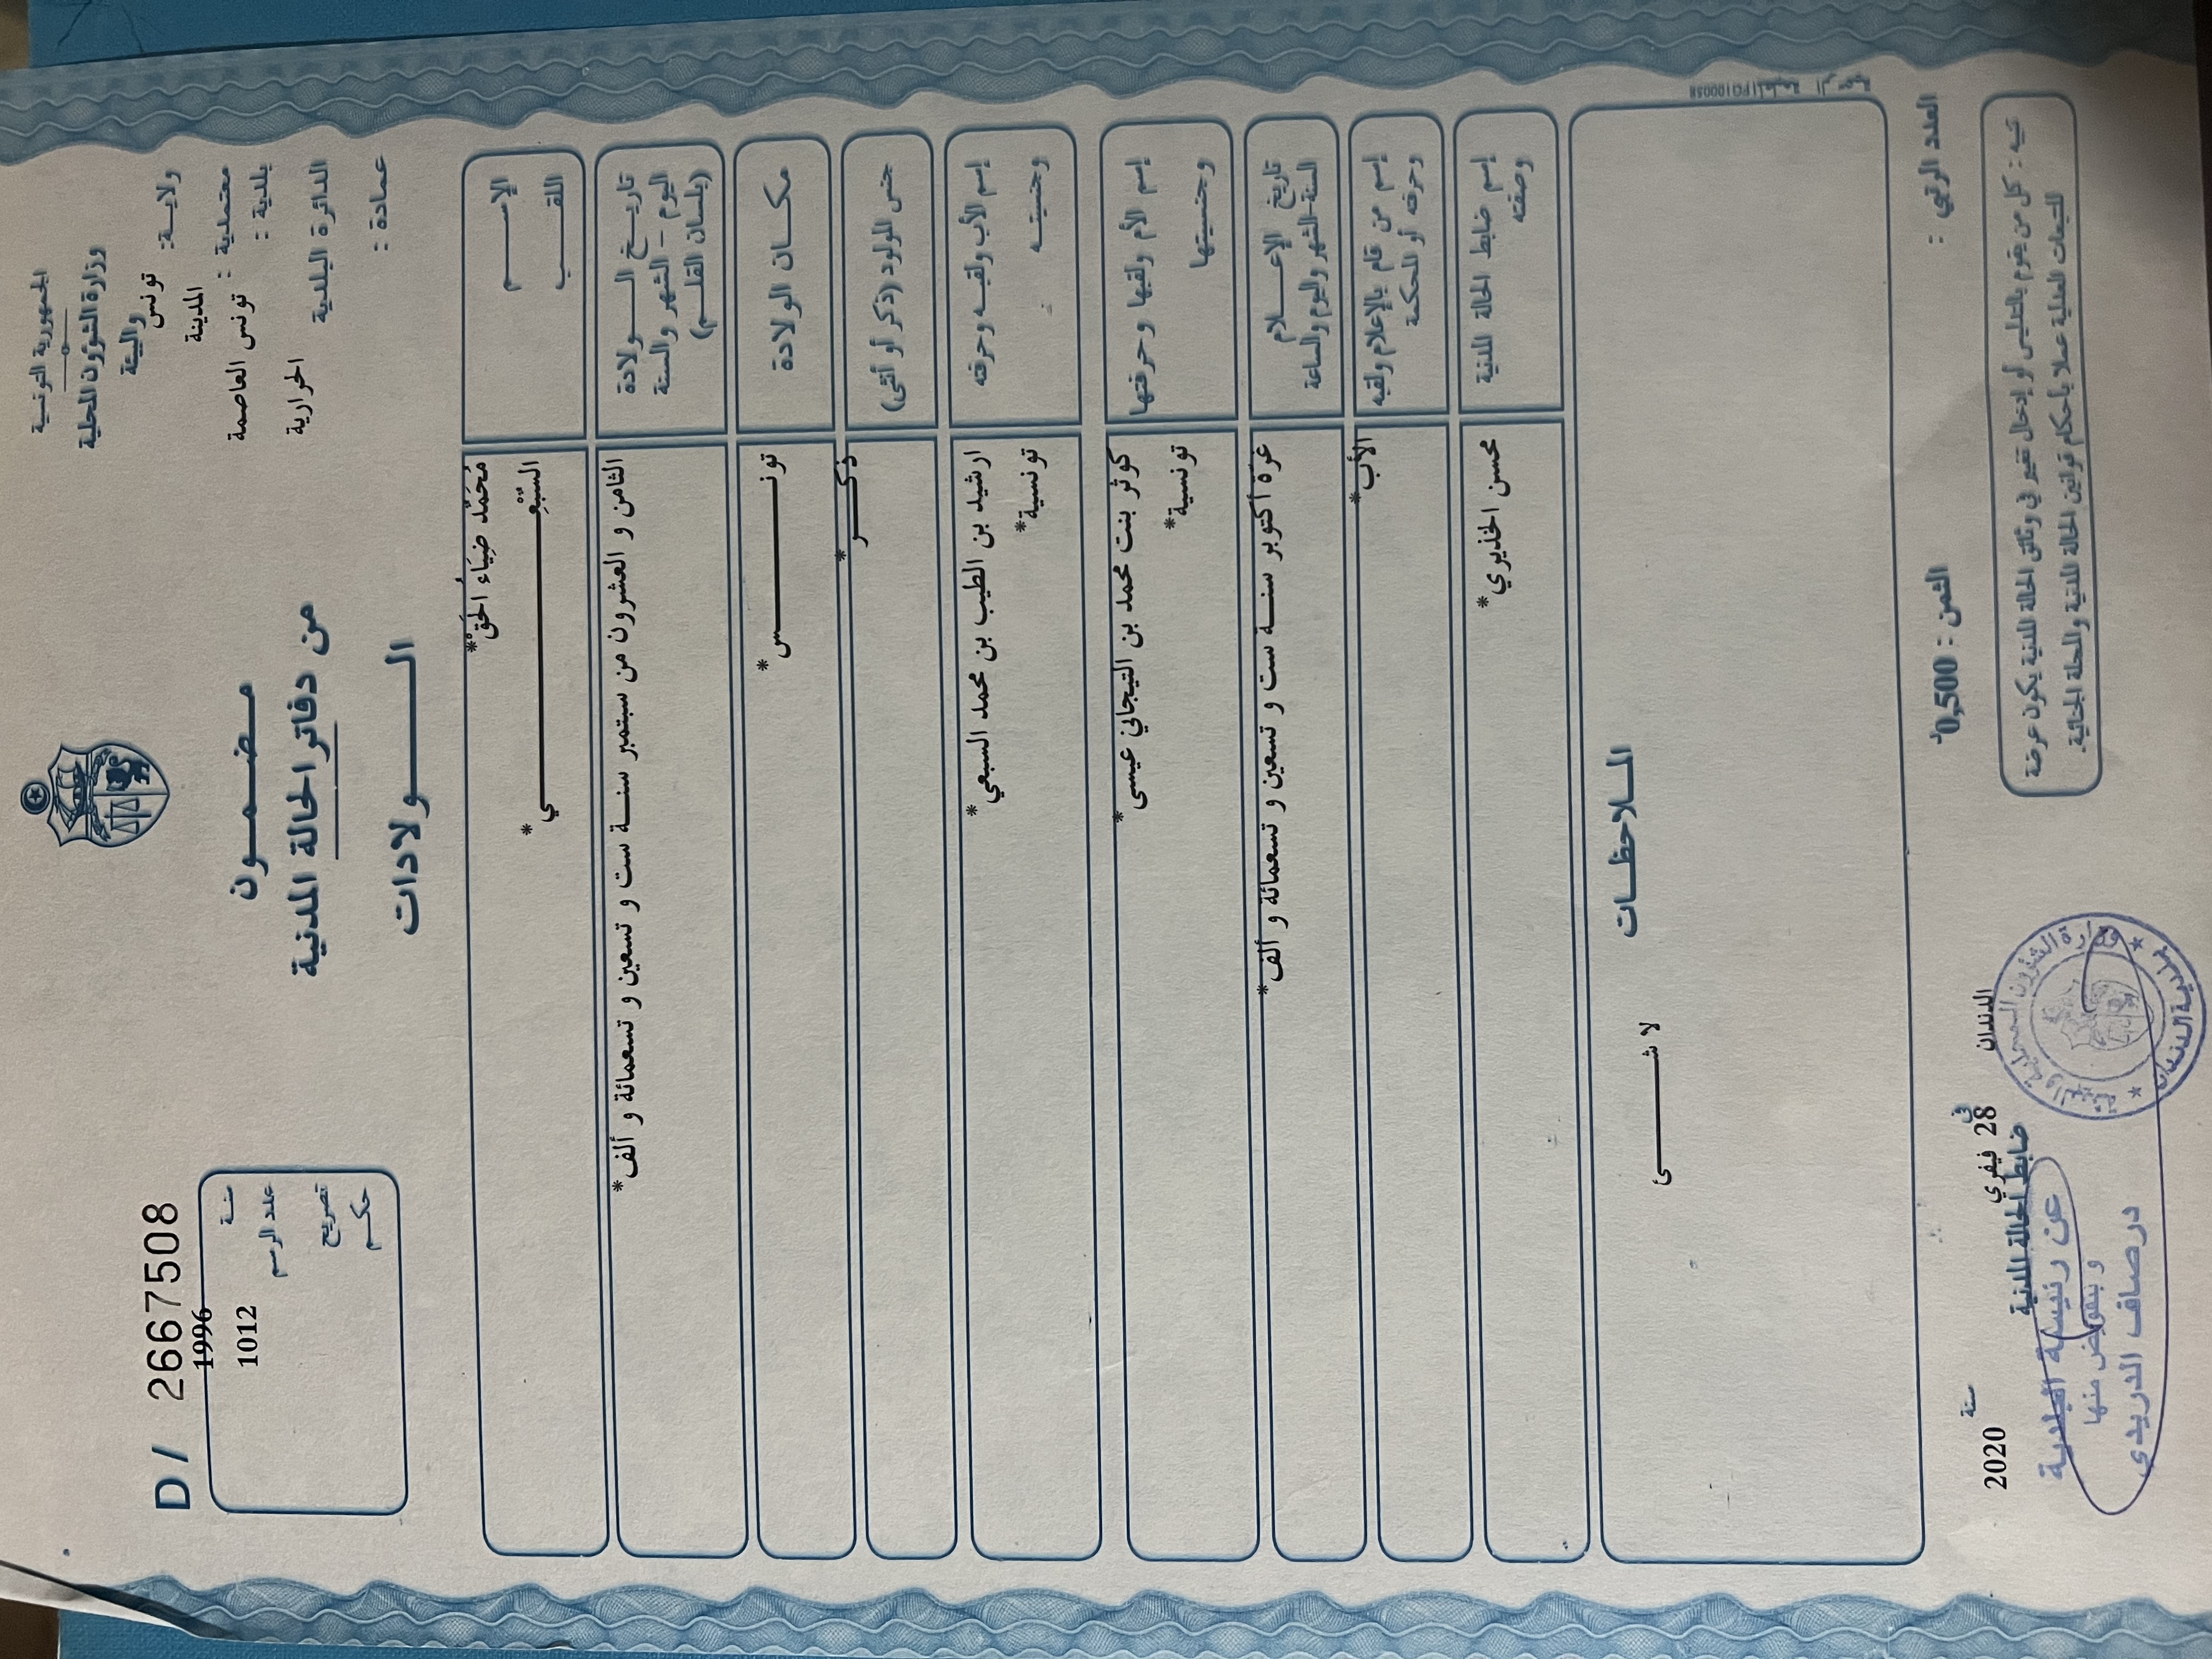 الجمهورية التونسية
وزارة الشؤون المحلية
والبيئة
ولاية: تونس
المدينة
معتمدية :
بلدية : تونس العاصمة
الدائرة البلدية
الحرارية
عمادة :
مضمون
من دفاتر الحالة المدنية
الولادات
D / 2667508
سنة 1996
عدد الرسم 1012
تصريح
حكم
الإسم
مُحَمَّد ضِيَاء الحَقْ*
اللقب
السّبْعِي*
تاريخ الولادة
اليوم - الشهر والسنة
(بلسان القلم)
الثامن و العشرون من سبتمبر سنة ست و تسعين و تسعمائة و ألف*
مكان الولادة
تونس*
جنس المولود (ذكر أو أنثى)
ذكر*
إسم الأب ولقبه وحرفته
ارشيد بن الطيب بن محمد السبعي*
وجنسيته
تونسية*
إسم الأم ولقبها وحرفتها
كوثر بنت محمد بن التيجاني عيسى*
وجنسيتها
تونسية*
تاريخ الإعلام
السنة-الشهر واليوم والساعة
غرة أكتوبر سنة ست و تسعين و تسعمائة و ألف*
إسم من قام بالإعلام ولقبه
وحرفته أو المحكمة
الأب*
إسم ضابط الحالة المدنية
وصفته
محسن الخذيري*
الملاحظات
لا شئ
العدد الرتبي :
الثمن : 0,500د
تنبيه : كل من يقوم بالتدليس أو إدخال تغيير في وثائق الحالة المدنية يكون عرضة
للتبعات العدلية عملا بأحكام قوانين الحالة المدنية والمجلة الجنائية.
الدندان في 28 فيفري سنة 2020
ضابط الحالة المدنية
عن رئيسة البلدية
و بتفويض منها
درصاف الدريدي
وزارة الشؤون المحلية والبيئة
بلدية الدندان